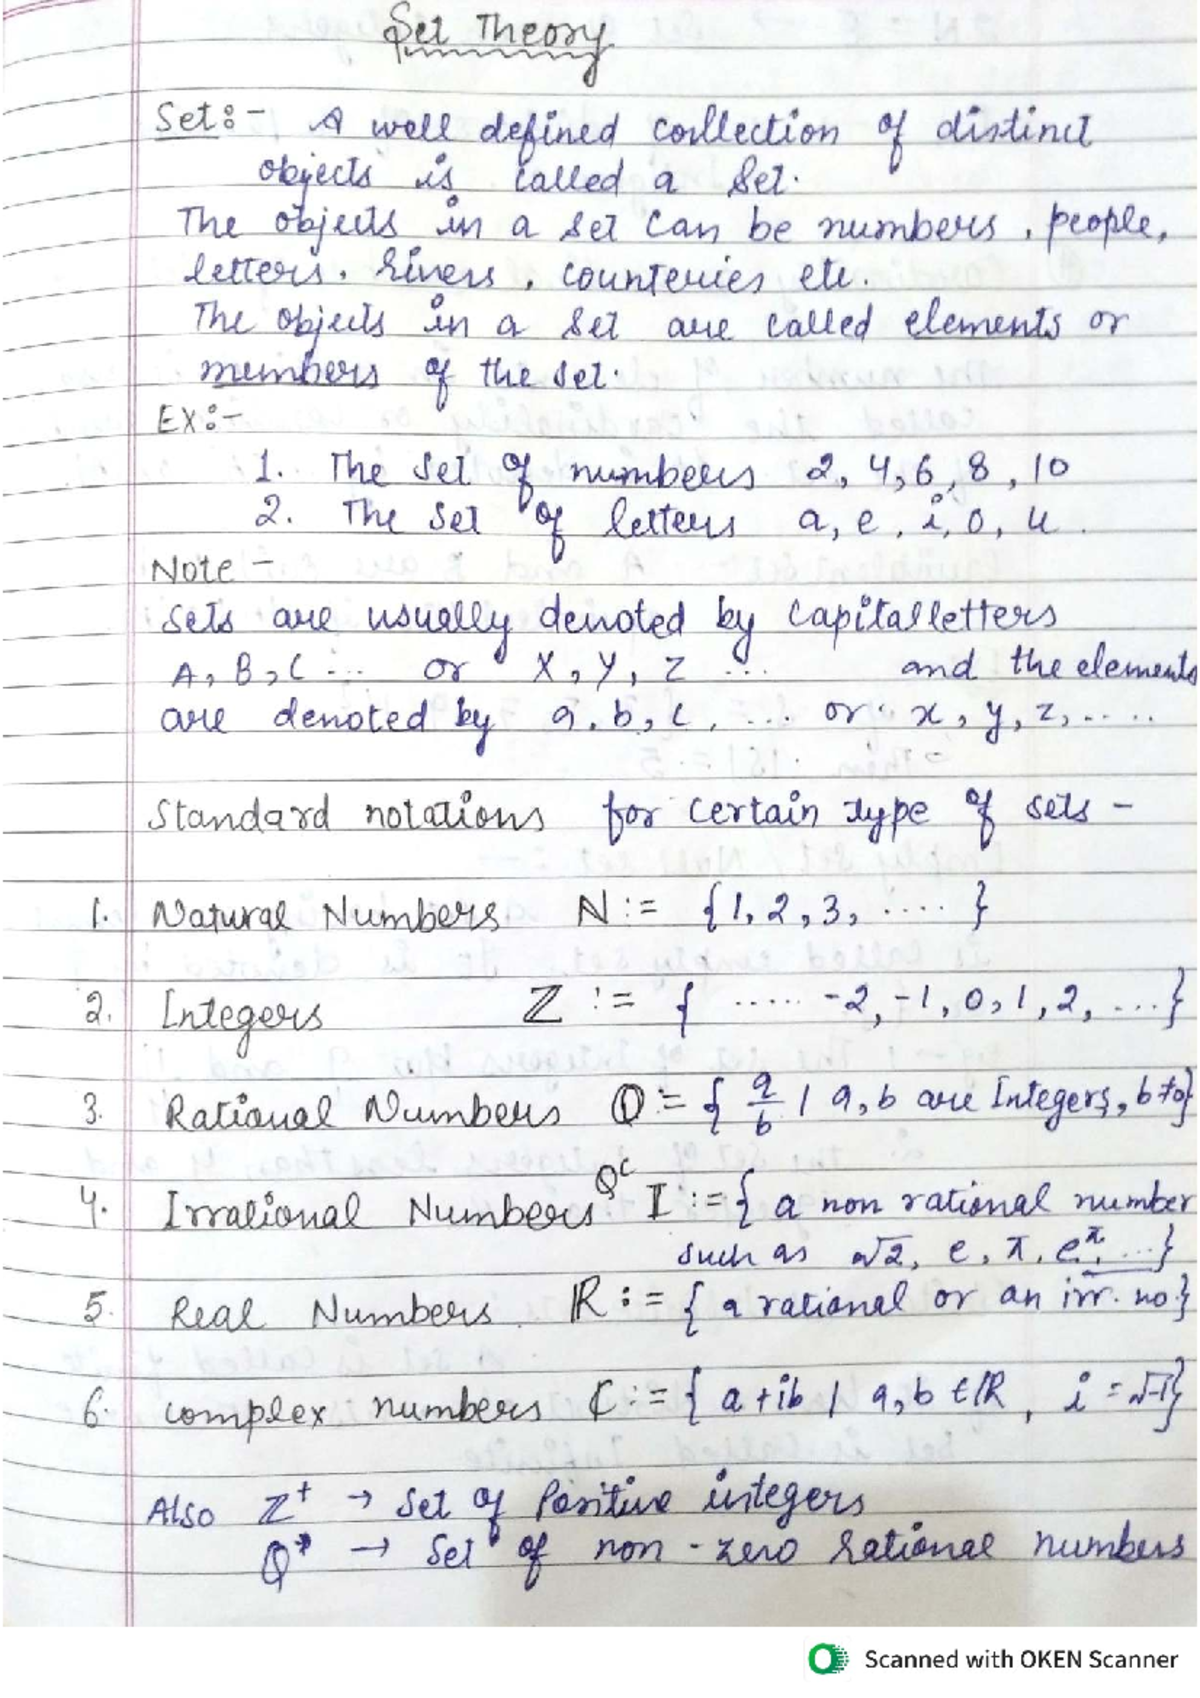 Set Theory
Set:- A well defined collection of distinct
objects is called a Set.
The objects in a set can be numbers, people,
letters, rivers, counteries etc.
The objects in a set are called elements or
members of the set.
Ex:-
1. The set of numbers 2, 4, 6, 8, 10
2. The set of letters a, e, i, o, u.
Note -
Sets are usually denoted by capital letters
A, B, C ... or X, Y, Z ... and the elements
are denoted by a, b, c, ... or x, y, z, .....
Standard notations for certain type of sets -
1. Natural Numbers N := {1, 2, 3, ....}
2. Integers ℤ := { ..... -2, -1, 0, 1, 2, ....}
3. Rational Numbers ℚ := { a/b | a, b are Integers, b≠0}
4. Irrational Numbers Qᶜ I := { a non rational number
such as √2, e, π, e^π, ...}
5. Real Numbers ℝ := { a rational or an irr. no.}
6. complex numbers ℂ := { a+ib | a, b ∈ ℝ, i = √-1}
Also Z⁺ → Set of Positive integers
Q* → Set of non-zero rational numbers
Scanned with OKEN Scanner